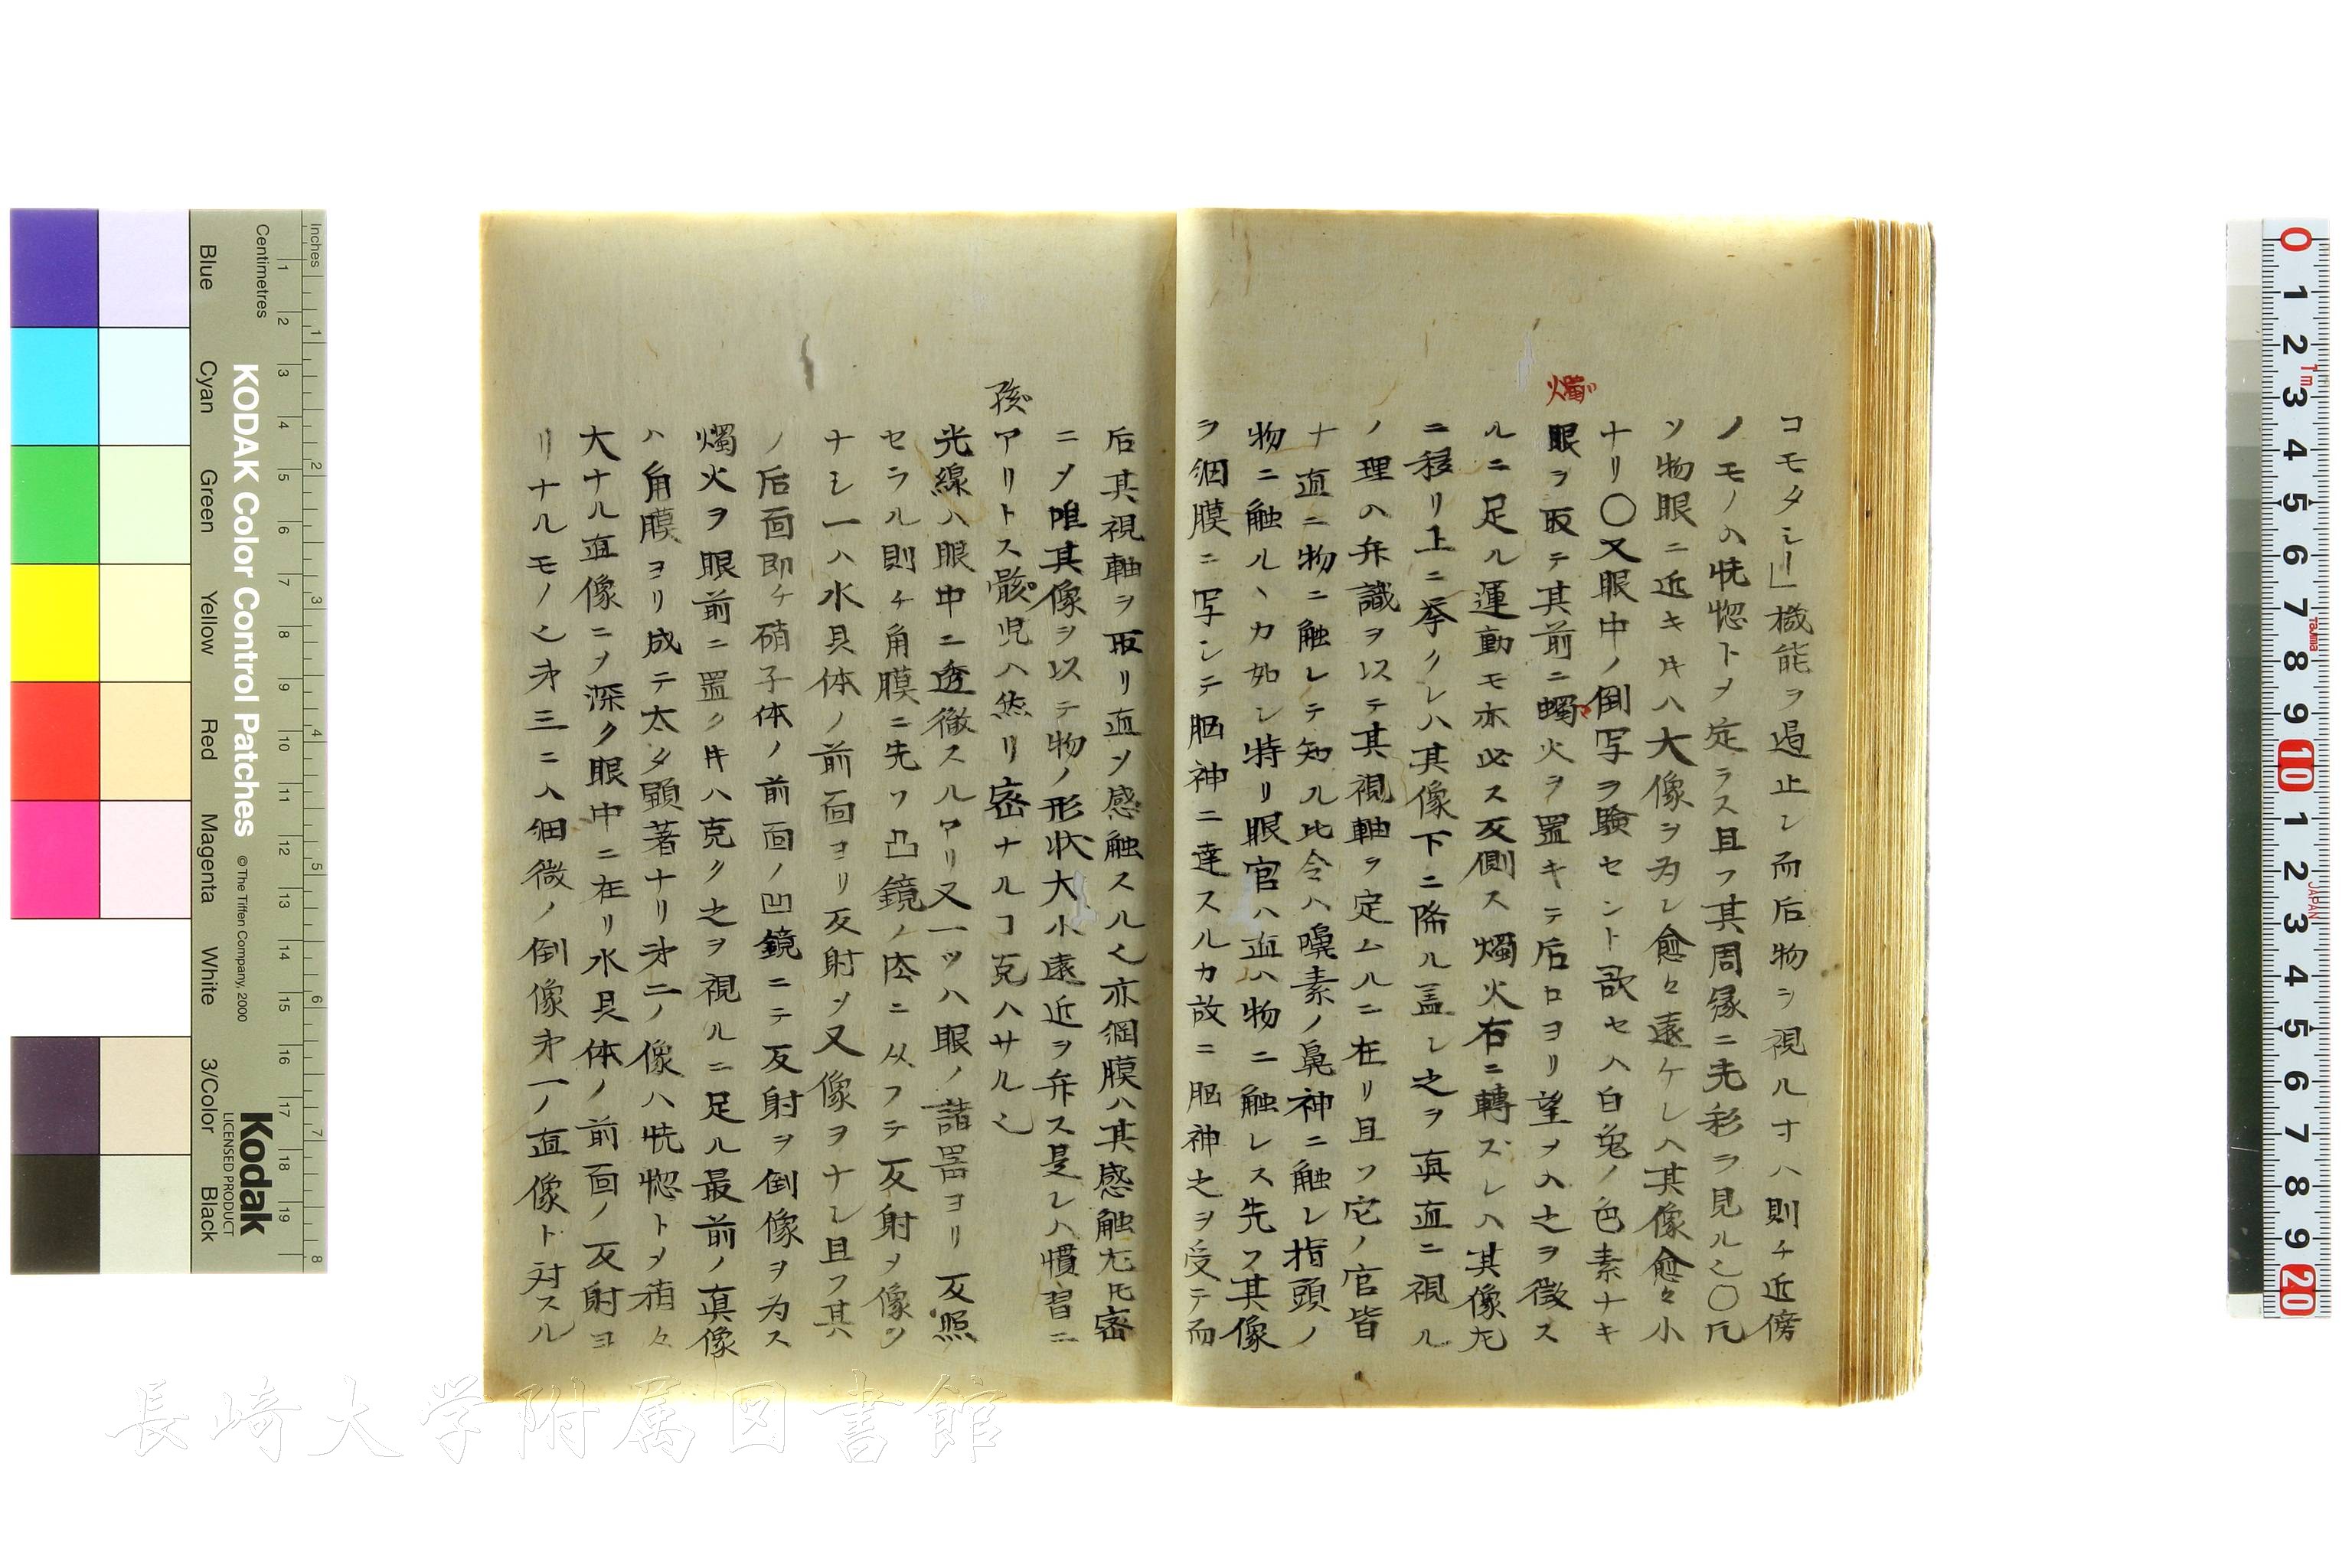 コモタシー」機能ヲ遏止シ而后物ヲ視ルオハ則チ近傍
ノモノハ恍惚トメ定ラス且ツ其周縁ニ光彩ヲ見ル乄〇凡
ソ物眼ニ近キキハ大像ヲ為シ愈々遠ケレハ其像愈々小
ナリ〇又眼中ノ倒写ヲ験セント欲セハ白兔ノ色素ナキ
燭
眼ヲ取テ其前ニ蠋火ヲ置キテ后ロヨリ望メハ之ヲ徴ス
ルニ足ル運動モ亦必ス反側ス燭火右ニ轉ズレハ其像左
ニ移リ上ニ挙クレハ其像下ニ降ル盖シ之ヲ真直ニ視ル
ノ理ハ弁識ヲ以テ其視軸ヲ定ムルニ在リ且ツ它ノ官皆
ナ直ニ物ニ触レテ知ル比令ハ嗅素ノ鼻神ニ触レ指頭ノ
物ニ触ルヽカ如シ特リ眼官ハ直ハ物ニ触レス先ツ其像
ヲ網膜ニ写シテ脳神ニ達スルカ故ニ脳神之ヲ受テ而
后其視軸ヲ取リ直ソ感触スル乄亦網膜ハ其感触尤モ密
ニメ唯其像ヲ以テ物ノ形状大小遠近ヲ弁ス是レハ慣習ニ
孩
アリトス骸児ハ然リ密ナルコ克ハサル乄
光線ハ眼中ニ透徹スルアリ又一ツハ眼ノ諸器ヨリ反照
セラル則チ角膜ニ先ツ凸鏡ノ㳒ニ从フテ反射メ像ヲ
ナシ一ハ水晶体ノ前面ヨリ反射メ又像ヲナシ且フ其
ノ后面即チ硝子体ノ前面ノ凹鏡ニテ反射ヲ倒像ヲ为ス
燭火ヲ眼前ニ置クキハ克ク之ヲ視ルニ足ル最前ノ真像
ハ角膜ヨリ成テ太タ顕著ナリ第二ノ像ハ恍惚トメ稍々
大ナル直像ニメ深ク眼中ニ在リ水晶体ノ前面ノ反射ヨ
リナルモノ乄第三ニハ細微ノ倒像第一ノ直像ト対スル
KODAK Color Control Patches
© The Tiffen Company, 2000
Kodak
LICENSED PRODUCT
Inches
Centimetres
Blue
Cyan
Green
Yellow
Red
Magenta
White
3/Color
Black
長崎大学附属図書館